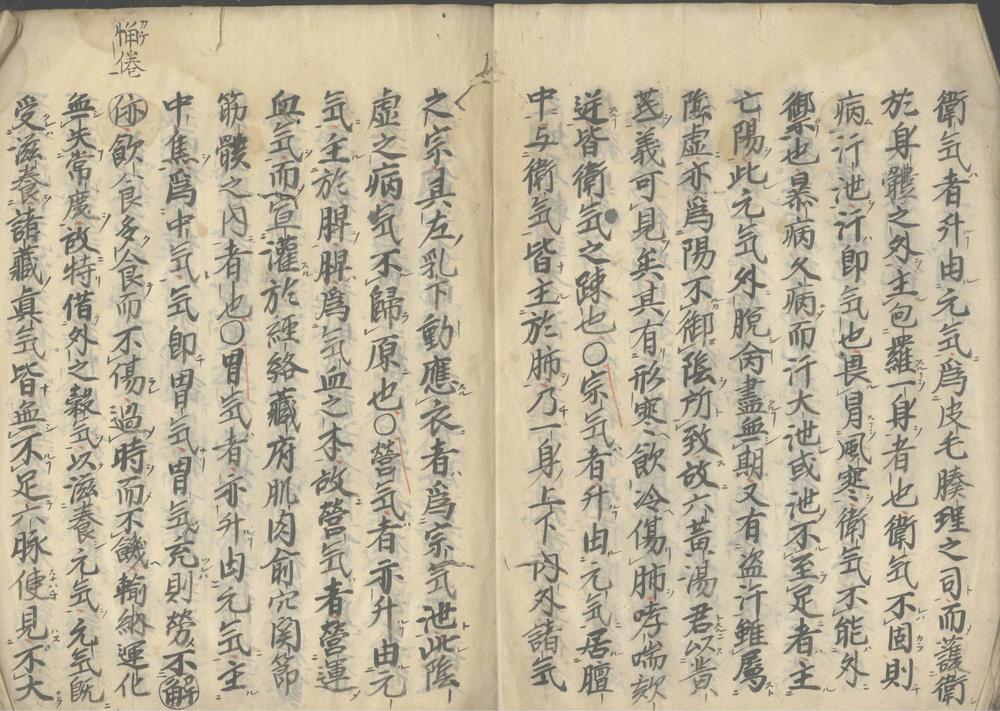 衛気者升由元気為皮毛腠理之司而護衛
於身體之外主包羅一身者也衛気不固則
病汗泄汗即気也畏冐風寒衛気不能外
禦也暴病久病而汗大泄或泄不至足者主
亡陽此元気外脫內盡無期又有盜汗雖属
陰虚亦為陽不御陰所致故六黄湯君以黄
茋義可見矣其有形寒飲冷傷肺哮喘欬
逆皆衛気之踈也〇宗気者升由元気居膻
中与衛気皆主於肺乃一身上下內外諸気
之宗其左乳下動應衣者為宗気泄此陰
虚之病気不歸原也〇營気者亦升由元
気主於脾脾為気血之本故營気者營運
血気而宣灌於経絡藏府肌肉俞穴関節
筋髏之內者也〇胃気者亦升由元気主
中焦為中気気即胃気胃気充則勞不解
㑊飲食多食而不傷過時而不饑輸納運化
無失常度故特借外之穀気以滋養元気元気既
受滋養諸藏真気皆無不足六脉便見不大
懈倦